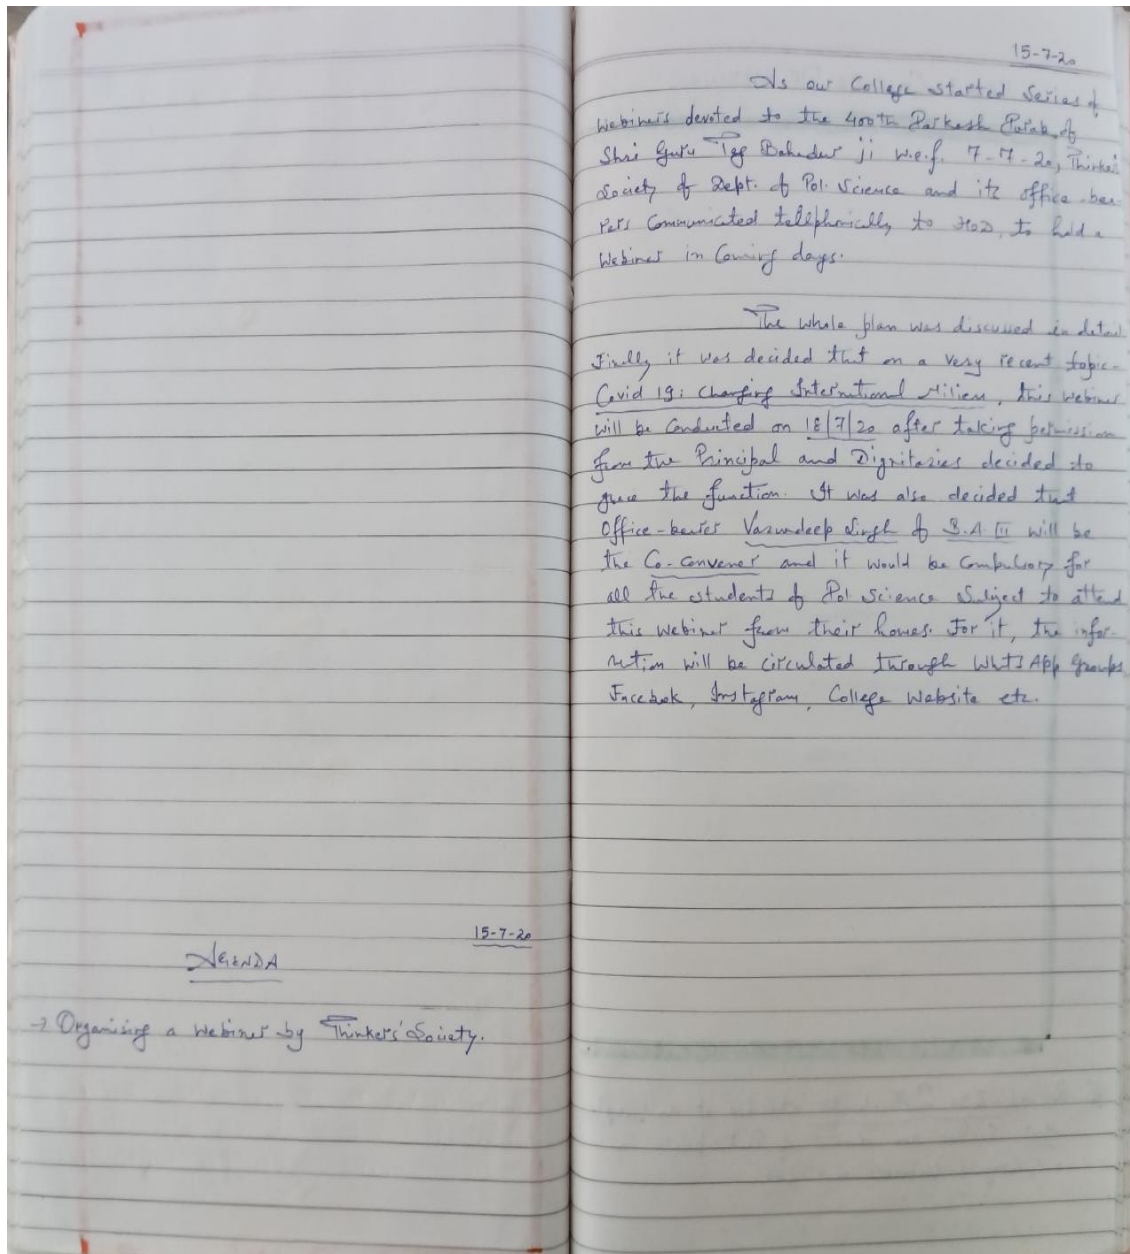 15-7-20
AGENDA
→ Organising a Webiner by Thinkers' Society.
15-7-20
As our College started Series of
Webiners devoted to the 400th Parkash Purab of
Shri Guru Teg Bahadur ji w.e.f. 7-7-20, Thinkers
Society of Dept. of Pol. Science and its office-bea-
rers Communicated telephonically to HOD, to hold a
Webiner in Coming days.
The whole plan was discussed in detail
Finally it was decided that on a very recent topic-
Covid 19: Changing International Milieu, this webiner
will be Conducted on 18/7/20 after taking permission
from the Principal and Dignitaries decided to
grace the function. It was also decided that
Office-bearer Varundeep Singh of B.A III will be
the Co-convener and it would be Compulsory for
all the students of Pol Science Subject to attend
this webiner from their homes. For it, the infor-
mation will be circulated through WhatsApp Groups,
Facebook, Instagram, College Website etc.